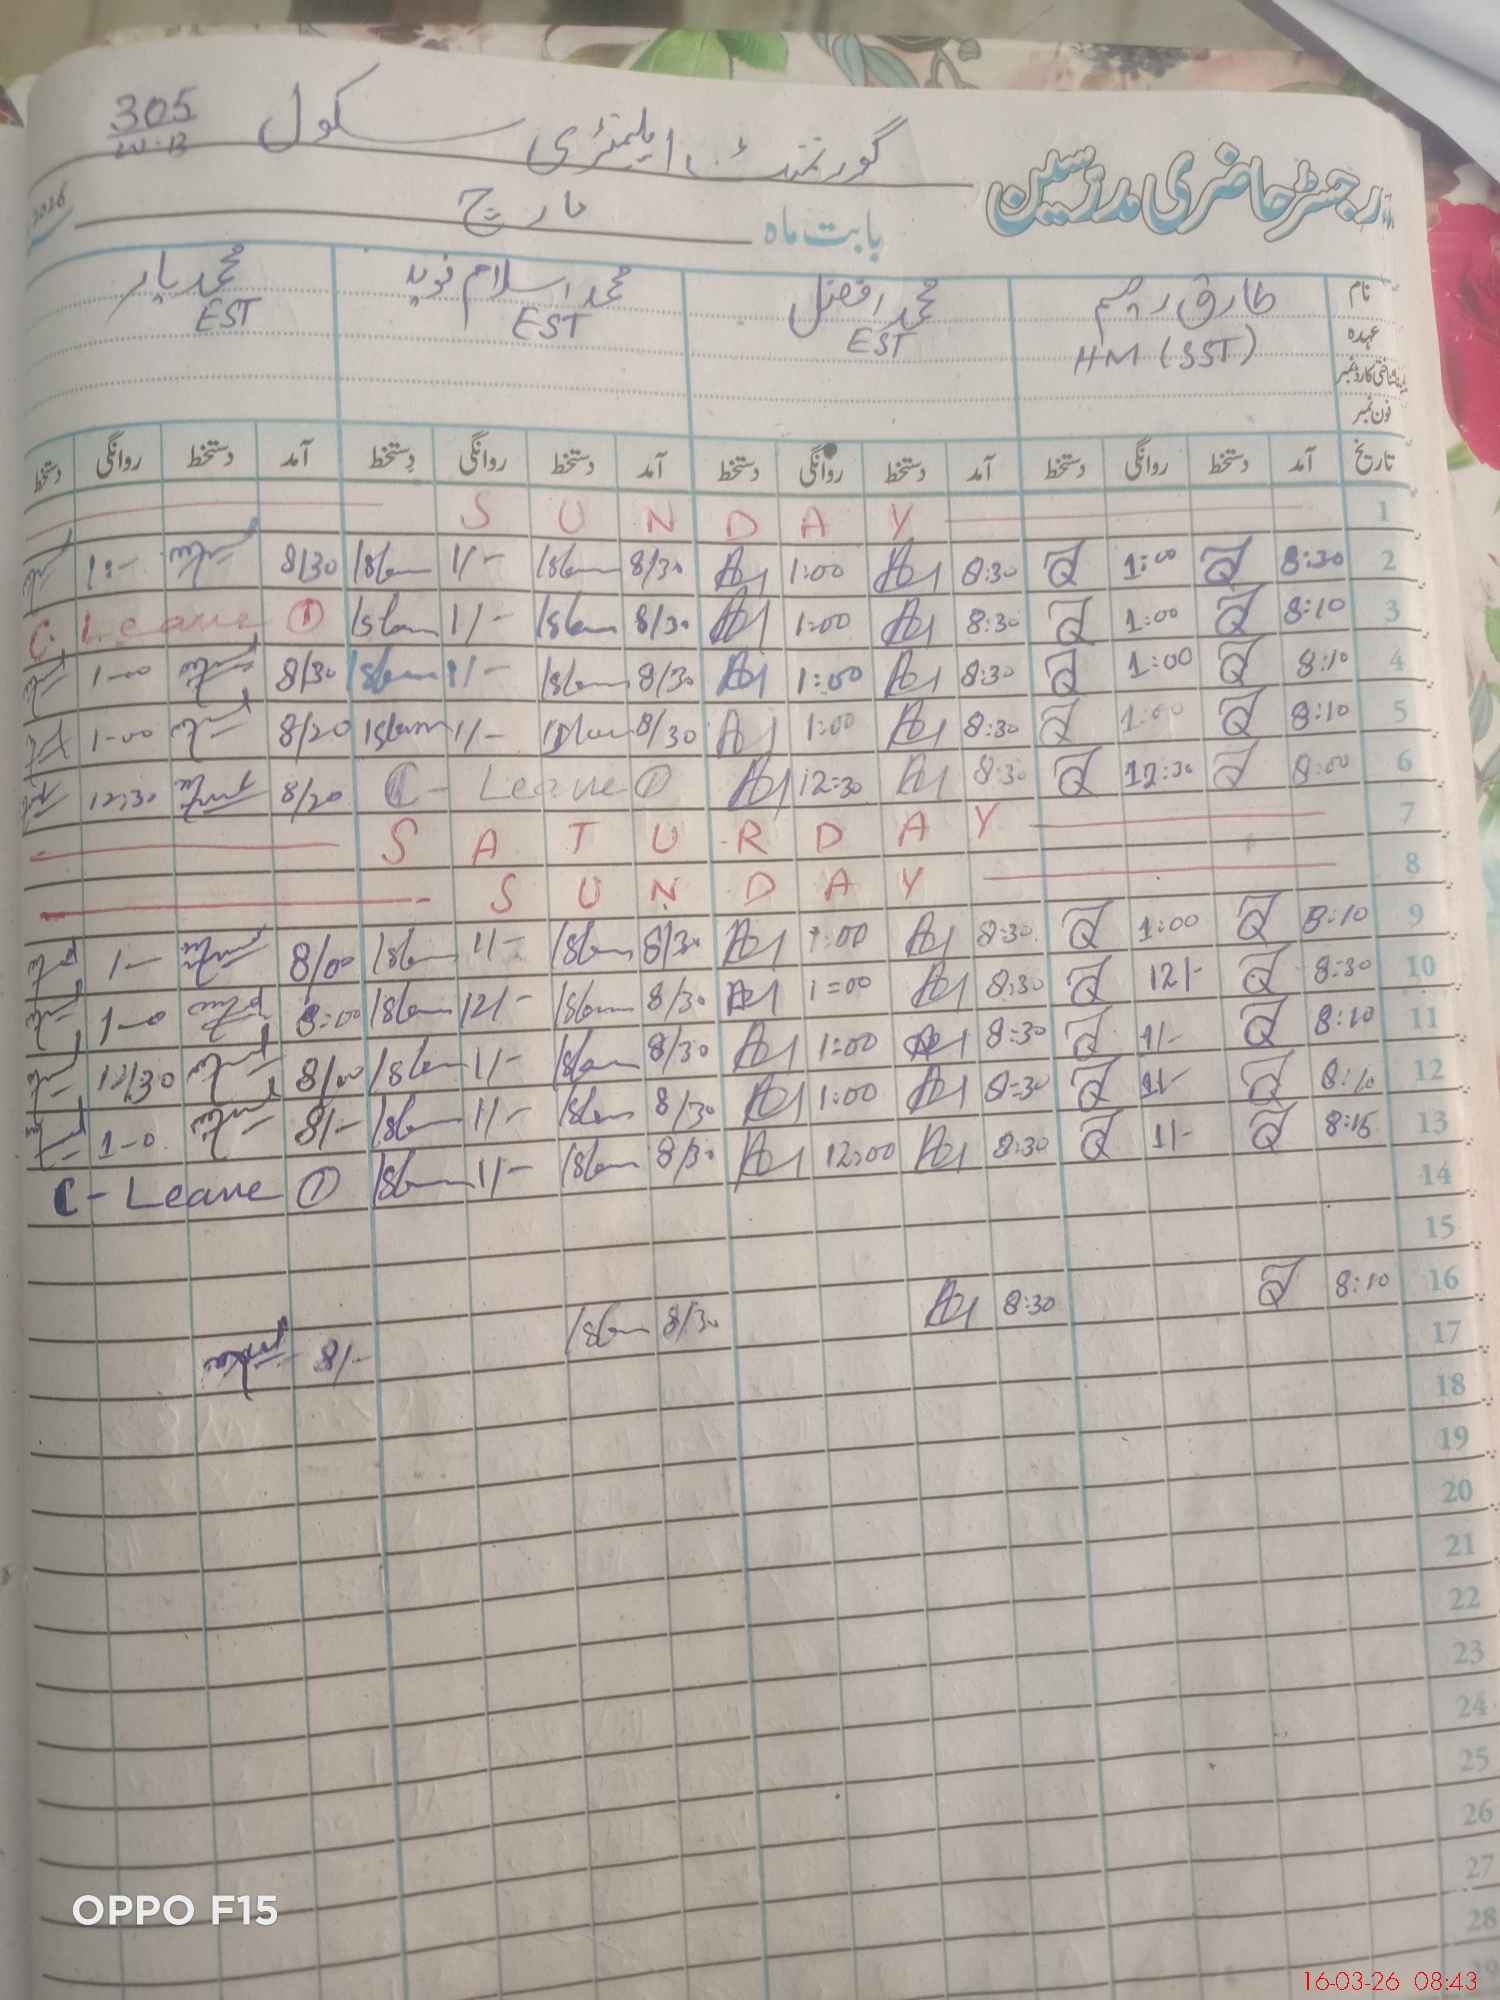 رجسٹر حاضری مدرسین گورنمنٹ ایلیمنٹری سکول 305 W.B
بابت ماہ مارچ 2026
نام طارق رحیم محمد افضل محمد اسلام نوید محمد یار
عہدہ HM (SST) EST EST EST
شناختی کارڈ نمبر
فون نمبر
تاریخ آمد دستخط روانگی دستخط آمد دستخط روانگی دستخط آمد دستخط روانگی دستخط آمد دستخط روانگی دستخط
1 SUNDAY
2 8:30 1:00 8:30 1:00 8/30 Islam 1/- Islam 8/30 1:-
3 8:10 1:00 8:30 1:00 8/30 Islam 1/- Islam C. Leave ①
4 8:10 1:00 8:30 1:00 8/30 Islam 1/- Islam 8/30 1-00
5 8:10 1:00 8:30 1:00 8/30 Islam 1/- Islam 8/20 1-00
6 8:00 12:30 8:30 12:30 C- Leave ① 8/20 12:30
7 SATURDAY
8 SUNDAY
9 8:10 1:00 8:30 1:00 8/30 Islam 1/- Islam 8/00 1-
10 8:30 12/- 8:30 1=00 8/30 Islam 12/- Islam 8:00 1-0
11 8:10 1/- 8:30 1:00 8/30 Islam 1/- Islam 8/00 12/30
12 8:10 1/- 8:30 1:00 8/30 Islam 1/- Islam 8/- 1-0
13 8:15 1/- 8:30 12:00 8/30 Islam 1/- Islam C- Leave ①
14
15
16 8:10 8:30 8/30 Islam 8/-
17
18
19
20
21
22
23
24
25
26
27
28
OPPO F15
16-03-26 08:43